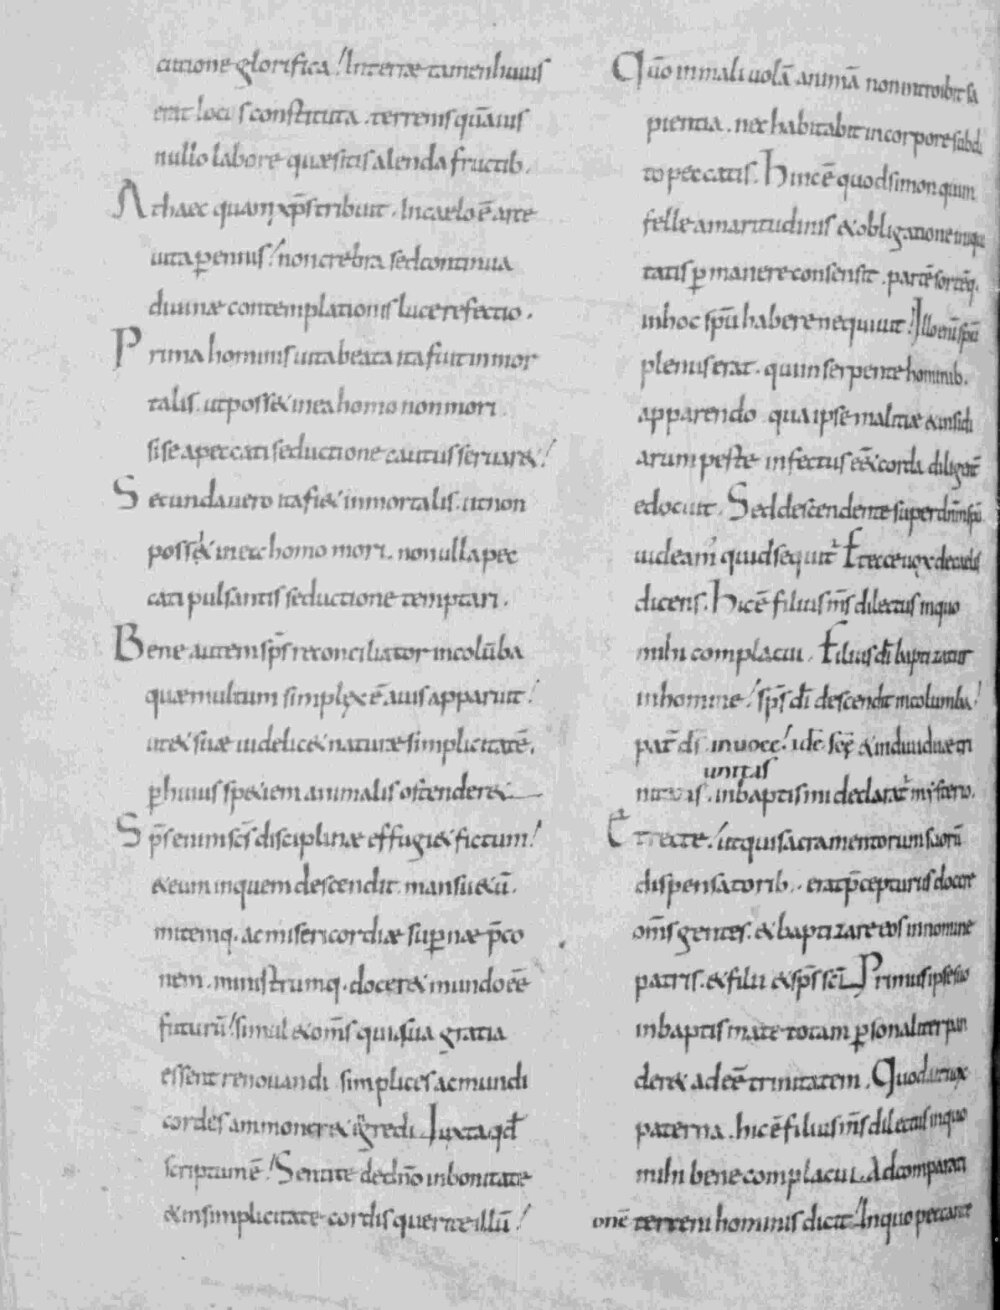 citatione glorifica! In terrae tamen huius
erat locis constituta . terrenis quāuis
nullo labore quaesitis alenda fructib.
At haec quam xp̄s tribuit . In caelo ē arce
uita p̱ennis! non crebra sed continua
diuinae contemplationis luce refectio .
Prima hominis uita beata ita fiut inmor
talis . ut poss& in ea homo non mori .
si se a peccati seductione cautus seruar&!
Secunda uero ita fi& inmortalis . ut non
poss& in ea homo mori . non ulla pec
cati pulsantis seductione temptari .
Bene autem sp̄s reconciliator in colūba
quae multum simplex ē auis apparuit!
ut & suae uidelic& naturae simplicitatē .
p̱ huius speciem animalis ostender&
Sp̄s enim sc̄s disciplinae effugi& fictum!
& eum in quem descendit . mansu&ū .
mitemq. ac misericordiae sup̱nae p̄co
nem . ministrumq. docer& mundo eē
futurū! simul & om̄s qui sua gratia
essent renouandi . simplices ac mundi
cordes ammoner& īgredi . Iuxta qđ
scriptum ē! Sentite de dn̄o in bonitate
& in simplicitate cordis querite illū!
Qm̄o in maliuolā animā non introibit sa
pientia . nec habitabit in corpore subdi
to peccatis . Hinc ē quod simon qui in
felle amaritudinis & obligatione iniqui
tatis p̱manere consensit . partē sortēq.
in hoc sp̄u habere nequiuit! Illo enī sp̄u
plenus erat . qui in serpente hominib.
apparendo qua ipse malitiae & insidi
arum peste infectus eēt & corda diligāt
edocuit . Sed descendente super dn̄m sp̄u
uideam' quid sequit' & ecce uox de caelis
dicens . Hic ē filius m̄s dilectus in quo
mihi complacui . filius dī baptizatur
in homine! sp̄s dī descendit in columba!
pat' dī in uoce! idē scē & indiuiduae tri
unitas
nitatis . in baptismi declarat' mysterio .
Et recte! ut qui sacramentorum suorū
dispensatorib. erat p̄cepturus docere
om̄s gentes . & baptizare eos in nomine
patris . & filii & sp̄s sc̄i . Primus ipse suo
in baptismate totam p̱sonaliter pan
der& adeē trinitatem . Quod autē uox
paterna . hic ē filius m̄s dilectus in quo
mihi bene complacui . Ad comparati
onē terreni hominis dicit! In quo peccante